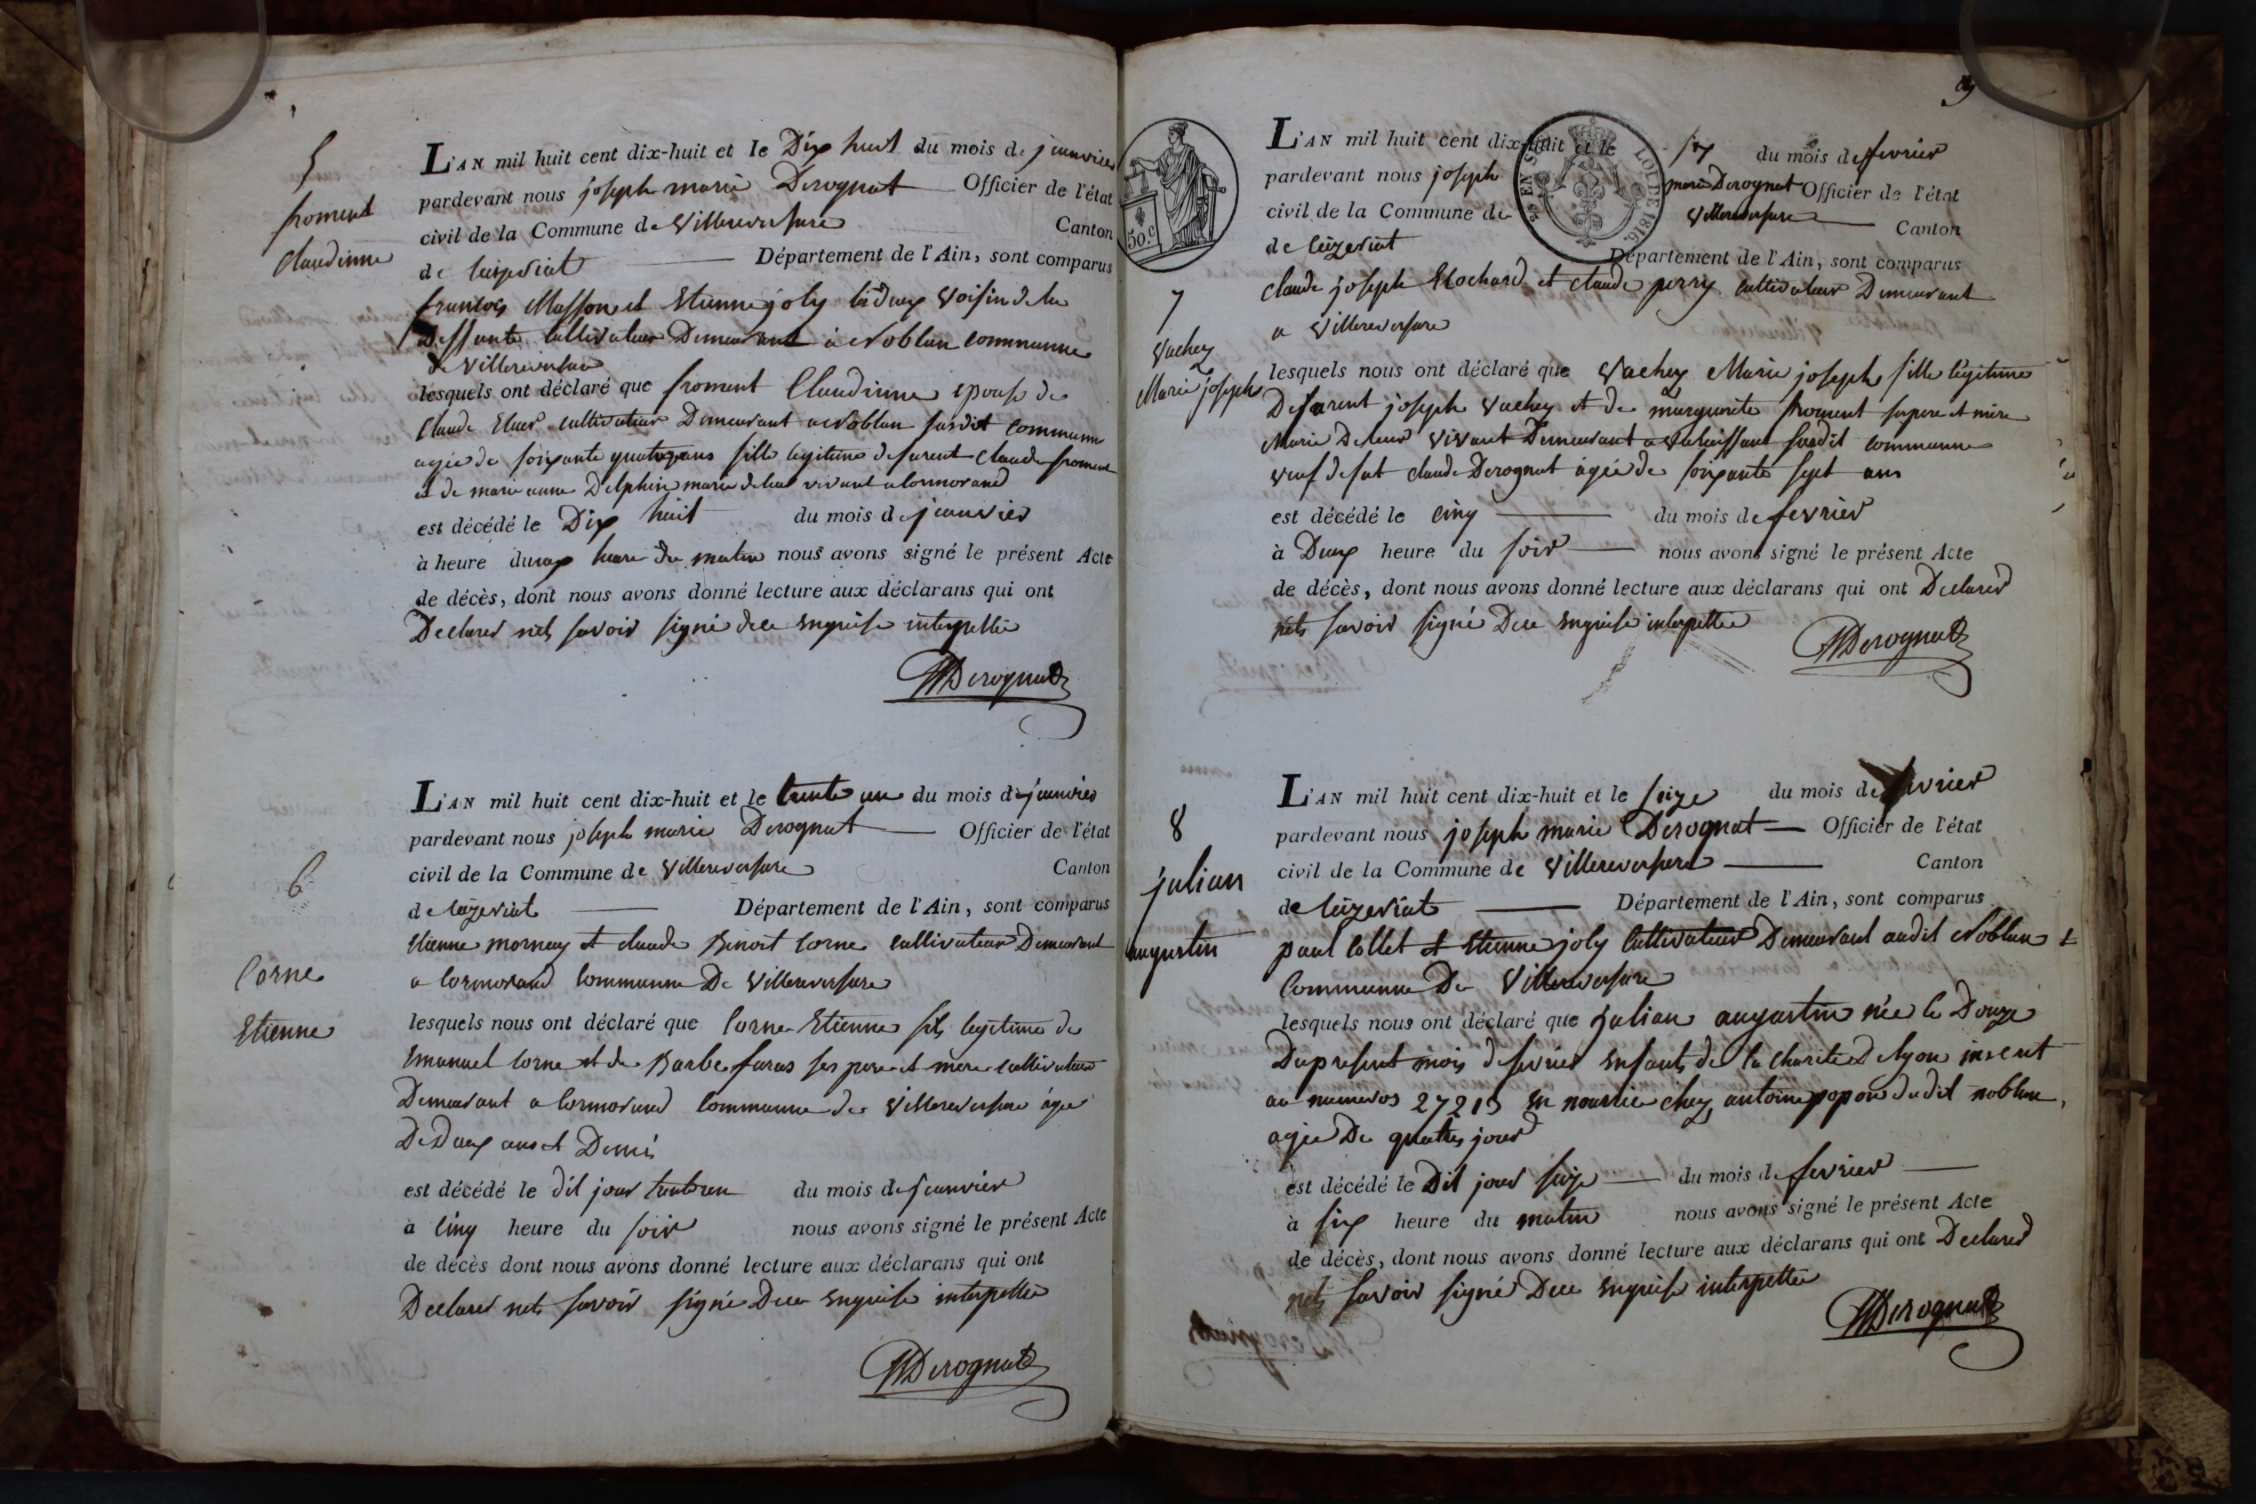 5
froment
Claudinne
L'AN mil huit cent dix-huit et le Dix huit du mois de janvier
pardevant nous joseph marie Derognat Officier de l'état
civil de la Commune de Villereversure Canton
de Ceizeriat Département de l'Ain, sont comparus
francois Masson et Etienne joly Voisin de la
cultivateur Demeurant à Noblan commune
de Villereversure
lesquels ont déclaré que froment Claudinne epouse de
Claude cultivateur Demeurant a Noblan susdit commune
agée de soixante quatorze ans fille legitime defurent Claude froment
et de marie anne Delphin marie deleur vivant a Cormorand
est décédé le Dix huit du mois de janvier
à heure du matin nous avons signé le présent Acte
de décès, dont nous avons donné lecture aux déclarans qui ont
Declarer savoir signé dece enquise interpellée
JMDerognat
6
Corne
Etienne
L'AN mil huit cent dix-huit et le trente un du mois de janvier
pardevant nous joseph marie Derognat Officier de l'état
civil de la Commune de Villereversure Canton
de Ceizeriat Département de l'Ain, sont comparus
Etienne mornay et claude Benoit Corne cultivateur Demeurant
a Cormorand Commune De Villereversure
lesquels nous ont déclaré que Corne Etienne fils legitime de
Emanuel Corne et de Barbe furas ses pere et mere cultivateur
Demeurant a Cormorand Commune de Villereversure âgée
De Deux ans et Demi
est décédé le dit jour trente un du mois de janvier
à Cinq heure du soir nous avons signé le présent Acte
de décès dont nous avons donné lecture aux déclarans qui ont
Declarer savoir signé Dece enquise interpellée
JMDerognat
9
50.c
EN SUS
LOI DE 1816.
7
Vachey
Marie joseph
L'AN mil huit cent dix-huit et le six du mois de fevrier
pardevant nous joseph marie Derognat Officier de l'état
civil de la Commune de Villereversure Canton
de Ceizeriat Département de l'Ain, sont comparus
claude joseph Blochard et claude perry cultivateur Demeurant
a Villereversure
lesquels nous ont déclaré que Vachey Marie joseph fille légitime
Defurent joseph Vachey et de marguerite froment ses pere et mere
Marie Deleur Vivant Demeurant a susdit commune
veuf defut claude Derognat âgée de soixante sept ans
est décédé le cinq du mois de fevrier
à Deux heure du soir nous avons signé le présent Acte
de décès, dont nous avons donné lecture aux déclarans qui ont Declarer
savoir signé Dece enquise interpellée
JMDerognat
8
julian
augustin
L'AN mil huit cent dix-huit et le seize du mois de fevrier
pardevant nous joseph marie Derognat Officier de l'état
civil de la Commune de Villereversure Canton
de Ceizeriat Département de l'Ain, sont comparus
paul Collet et Etienne joly Cultivateur Demeurant audit Noblan
Commune De Villereversure
lesquels nous ont déclaré que julian augustin née le Douze
Dupresent mois de fevrier enfants de la charité de lyon inscrit
au numeros 27215 en nourrice chez antoine popon dudit noblan,
agée De quatres jour
est décédé le Dit jour seize du mois de fevrier
à six heure du matin nous avons signé le présent Acte
de décès, dont nous avons donné lecture aux déclarans qui ont Declarer
savoir signé Dece enquise interpellée
JMDerognat